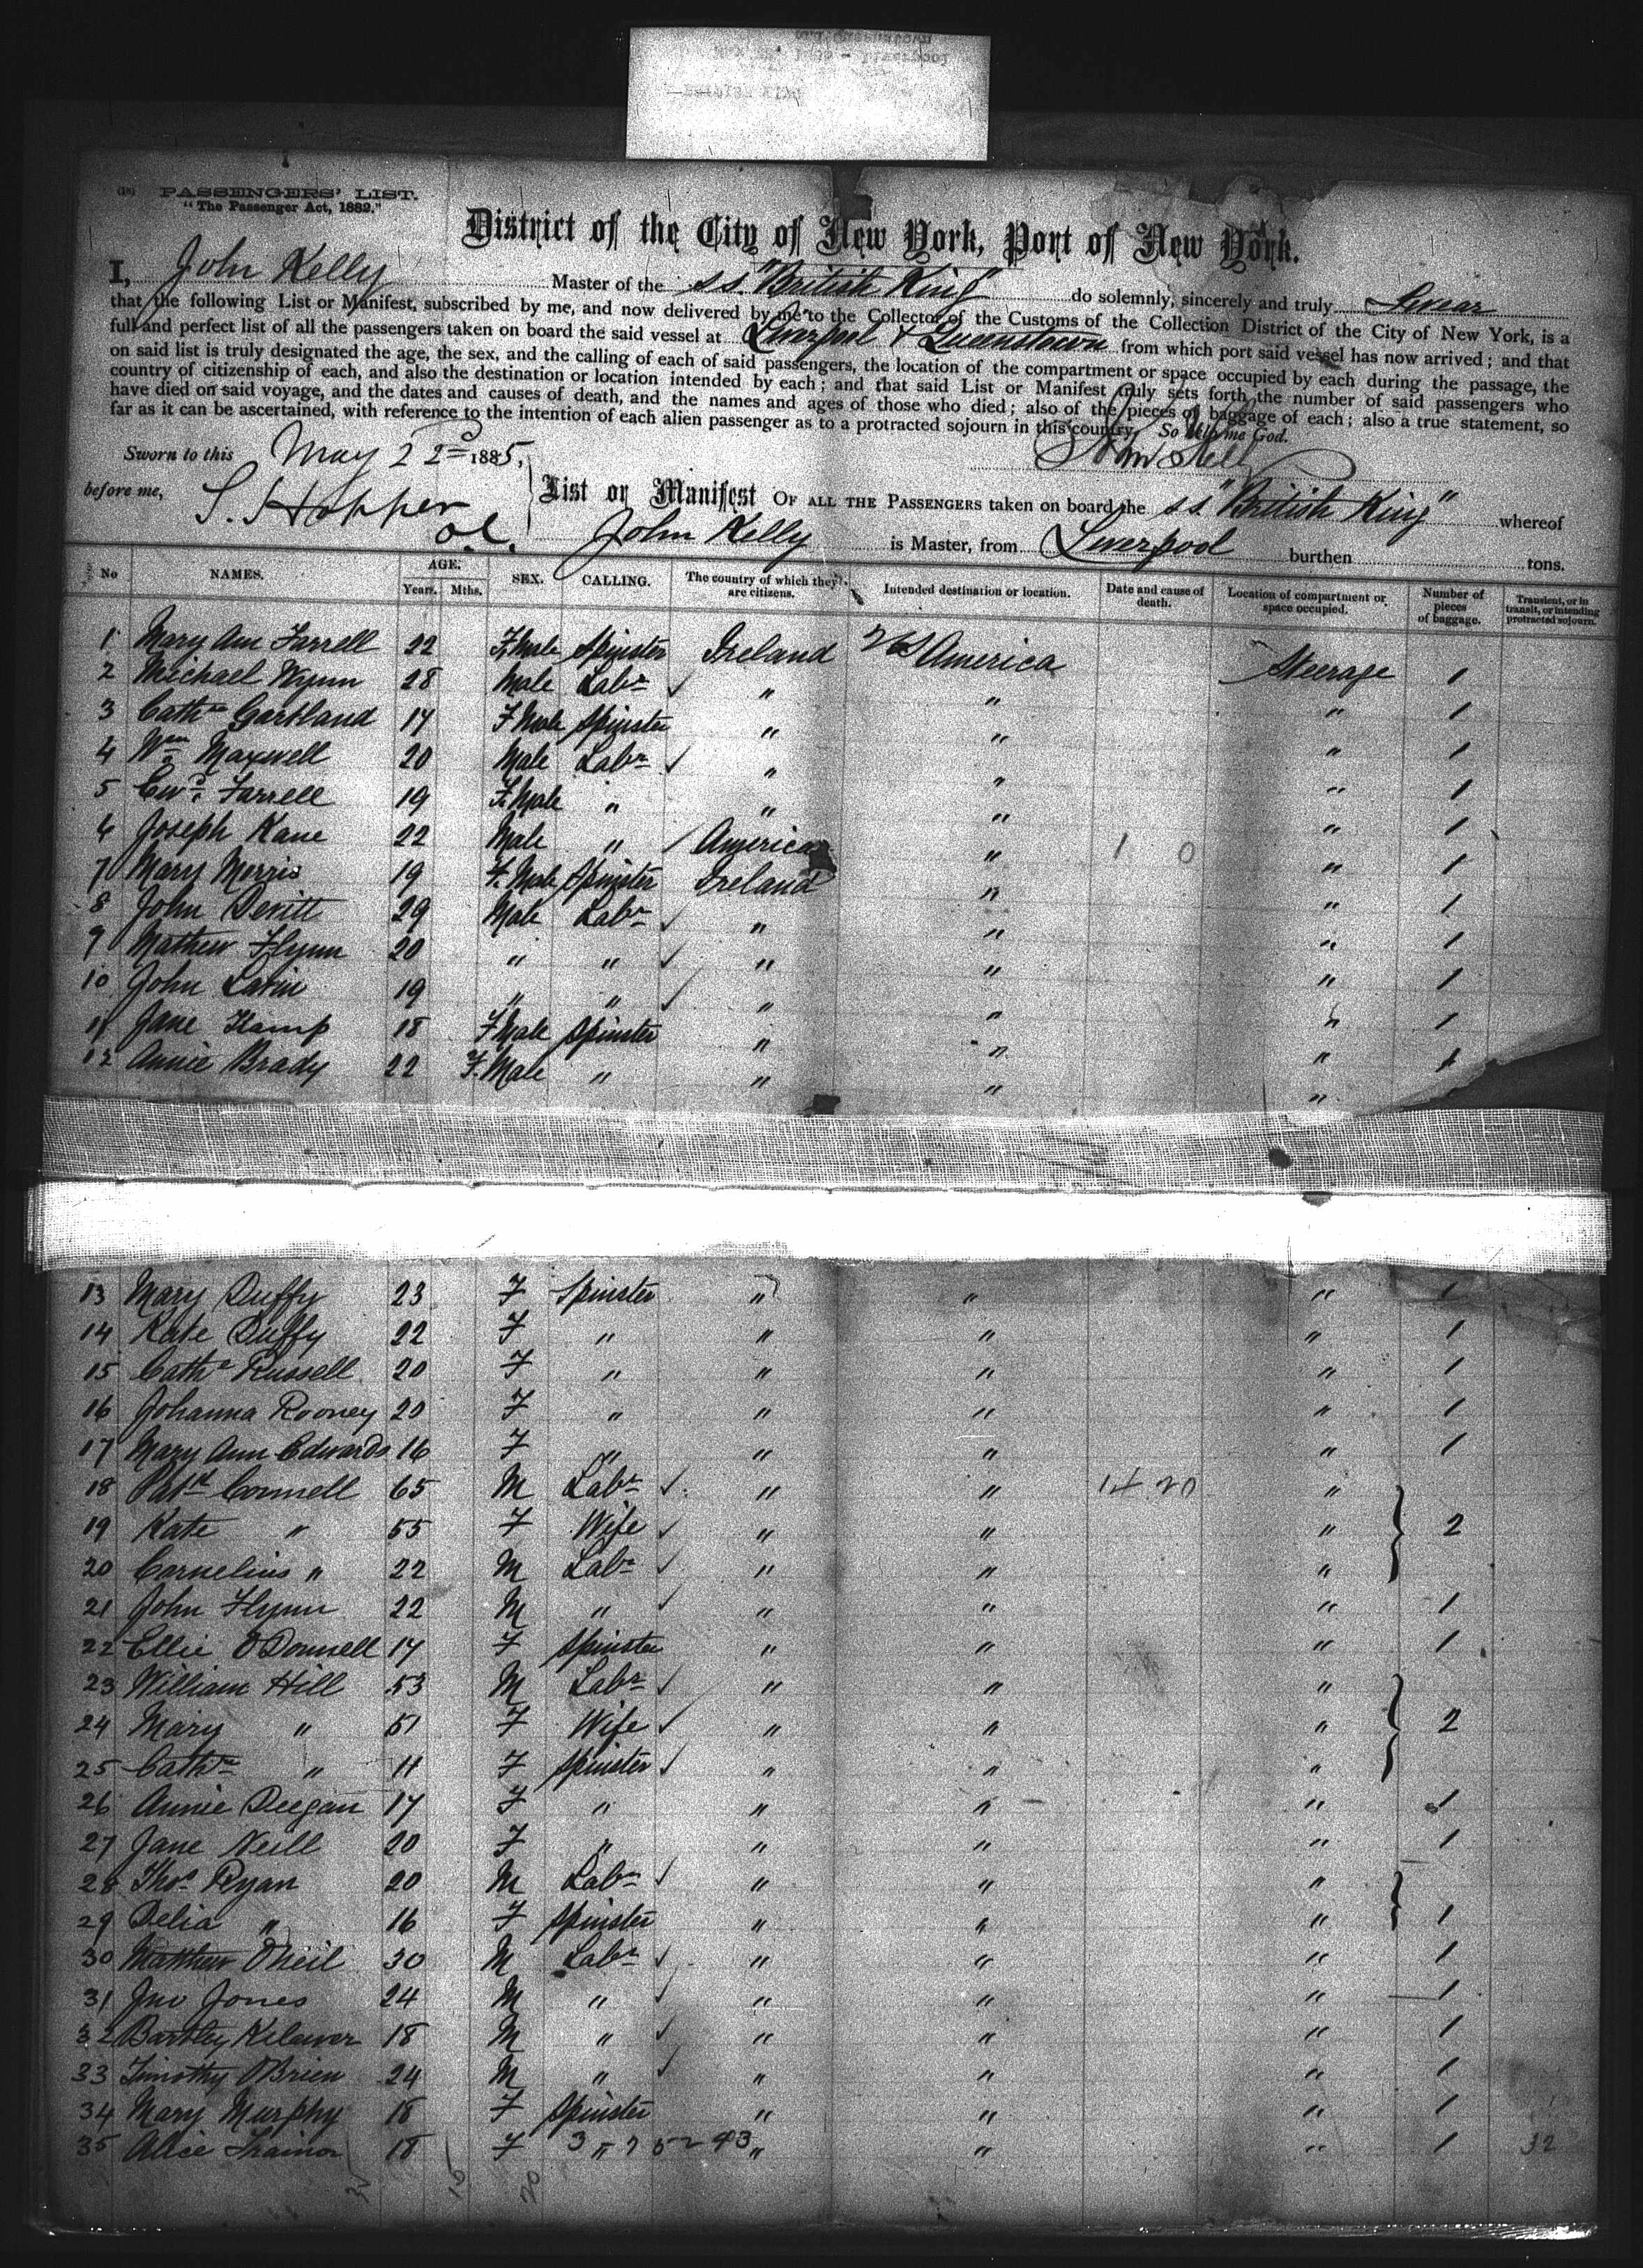 PASSENGERS' LIST.
"The Passenger Act, 1882."
District of the City of New York, Port of New York.
I, John Kelly Master of the s.s. "British King" do solemnly, sincerely and truly Swear
that the following List or Manifest, subscribed by me, and now delivered by me to the Collector of the Customs of the Collection District of the City of New York, is a
full and perfect list of all the passengers taken on board the said vessel at Liverpool & Queenstown from which port said vessel has now arrived; and that
on said list is truly designated the age, the sex, and the calling of each of said passengers, the location of the compartment or space occupied by each during the passage, the
country of citizenship of each, and also the destination or location intended by each; and that said List or Manifest truly sets forth the number of said passengers who
have died on said voyage, and the dates and causes of death, and the names and ages of those who died; also of the pieces of baggage of each; also a true statement, so
far as it can be ascertained, with reference to the intention of each alien passenger as to a protracted sojourn in this country. So help me God.
Sworn to this May 22nd 1885, John Kelly
before me, S. Hopper List or Manifest OF ALL THE PASSENGERS taken on board the s.s. "British King" whereof
John Kelly is Master, from Liverpool burthen tons.
No NAMES. AGE. Years. Mths. SEX. CALLING. The country of which they are citizens. Intended destination or location. Date and cause of death. Location of compartment or space occupied. Number of pieces of baggage. Transient, or in transit, or intending protracted sojourn.
1 Mary Ann Farrell 22 F.Male Spinster Ireland America Steerage 1
2 Michael Wynn 28 Male Labr ✓ " " " 1
3 Cathe Gartland 17 F Male Spinster " " " 1
4 Wm Maxwell 20 Male Labr ✓ " " " 1
5 Farrell 19 F.Male " " " " 1
6 Joseph Kane 22 Male " ✓ America " 1 0 " 1
7 Mary Morris 19 F.Male Spinster Ireland " " 1
8 John Devitt 29 Male Labr ✓ " " " 1
9 Mathew Flynn 20 " " ✓ " " " 1
10 John Larin 19 " " ✓ " " " 1
11 Jane Kamp 18 F Male Spinster " " " 1
12 Annie Brady 22 F.Male " " " "
13 Mary Duffy 23 F Spinster " " " 1
14 Kate Duffy 22 F " " " " 1
15 Cathe Russell 20 F " " " " 1
16 Johanna Rooney 20 F " " " " 1
17 Mary Ann Edwards 16 F " " " " 1
18 Patk Connell 65 M Labr ✓ " " 14 20 "
19 Kate " 55 F Wife ✓ " " " 2
20 Cornelius " 22 M Labr ✓ " " "
21 John Flynn 22 M " ✓ " " " 1
22 Ellie O'Donnell 17 F Spinster " " " 1
23 William Hill 53 M Labr ✓ " " "
24 Mary " 51 F Wife ✓ " " " 2
25 Cathe " 11 F Spinster ✓ " " "
26 Annie Deegan 17 F " " " " 1
27 Jane Neill 20 F " " " " 1
28 Thos Ryan 20 M Labr ✓ " " "
29 Delia " 16 F Spinster " " " 1
30 Matthew O'Neil 30 M Labr ✓ " " " 1
31 Jno Jones 24 M " ✓ " " " 1
32 Bartley 18 M " ✓ " " " 1
33 Timothy O'Brien 24 M " ✓ " " " 1
34 Mary Murphy 18 F Spinster " " " 1
35 Alice Trainor 18 F " " " " 1 32